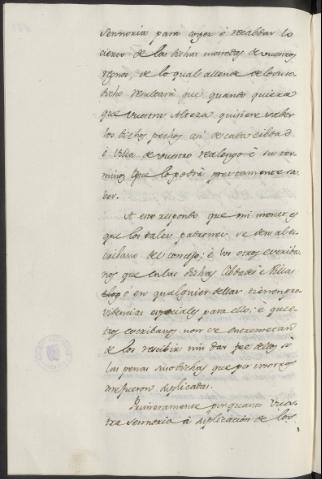 Sennoria para coger é recabdar lo
cierto de las dichas monedas de vuestros
regnos, de lo qual allende de lo suso
dicho resultará que quando quiera
que vuestra Alteza quisiere saber
los dichos pechos asi de cada cibdad
é villa de vuestro realengo é sus ter-
minos que lo podrá prestamente sa-
ber.
A esto respondo que mi merced es
que los tales patrones se den al es-
cribano del concejo; é los otros escriba-
nos que en las dichas Cibdades é Villas
é en qualquier dellas tienen pro-
videncias especiales para ello; é que
otros escribanos non se entremetan
de los rescibir nin dar fee dellos só
las penas susodichas que por vosotros
me fueron suplicadas.
Primeramente por quanto Vues-
tra Sennoria á suplicacion de los